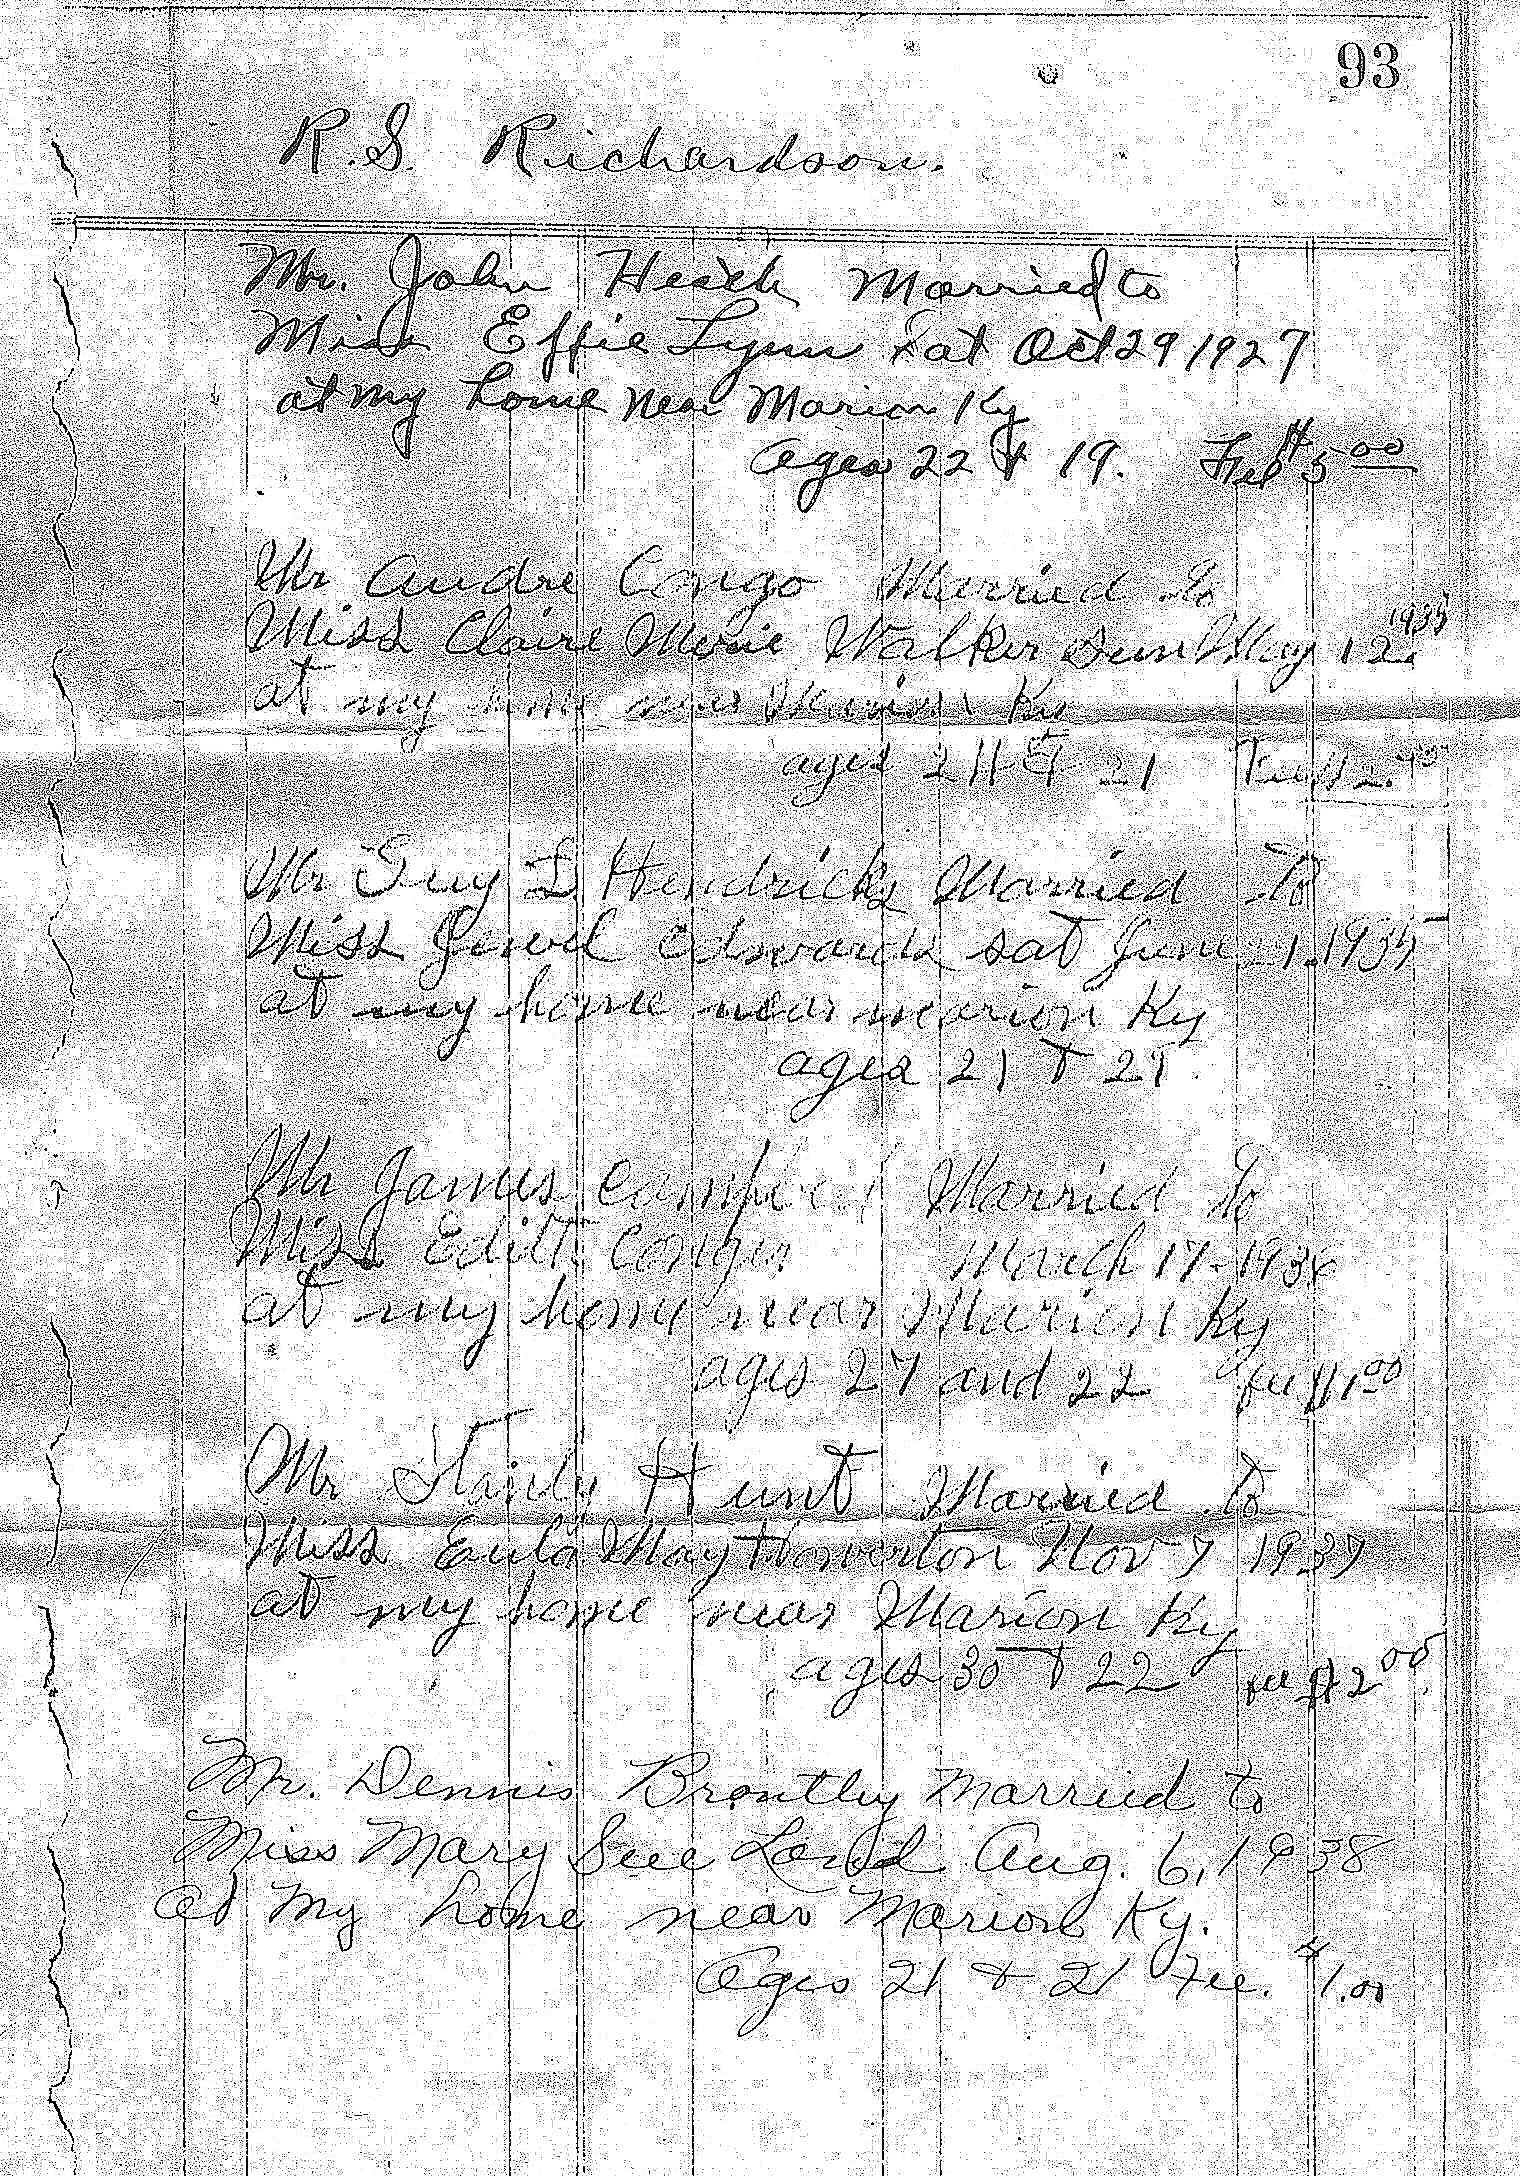 93
R.S. Richardson.
Mr. John Married to
Miss Effie Lynn Sat Oct 29 1927
at my home near Marion Ky
Ages 22 & 19. $5.00
Mr Audre Congo Married to
Miss Claire Marie Walker Sun May 12 1935
at my home near Marion Ky
ages & 21 Fee $2.00
Mr Guy L. Hendricks Married to
Miss Jewel Edwards sat June 1, 1935
at my home near marion Ky
ages 21 & 21
Mr James Campbell Married to
Miss Edith Conger March 17-1936
at my home near Marion Ky
ages 27 and 22 fee $1.00
Mr Stanly Hunt Married to
Miss Eula May Howerton Nov 7 1937
at my home near Marion Ky
ages 30 & 22 fee $2.00
Mr. Dennis Brantley Married to
Miss Mary Sue Aug. 6, 1938
at My home near Marion Ky.
Ages 21 & 21 Fee. $1.00